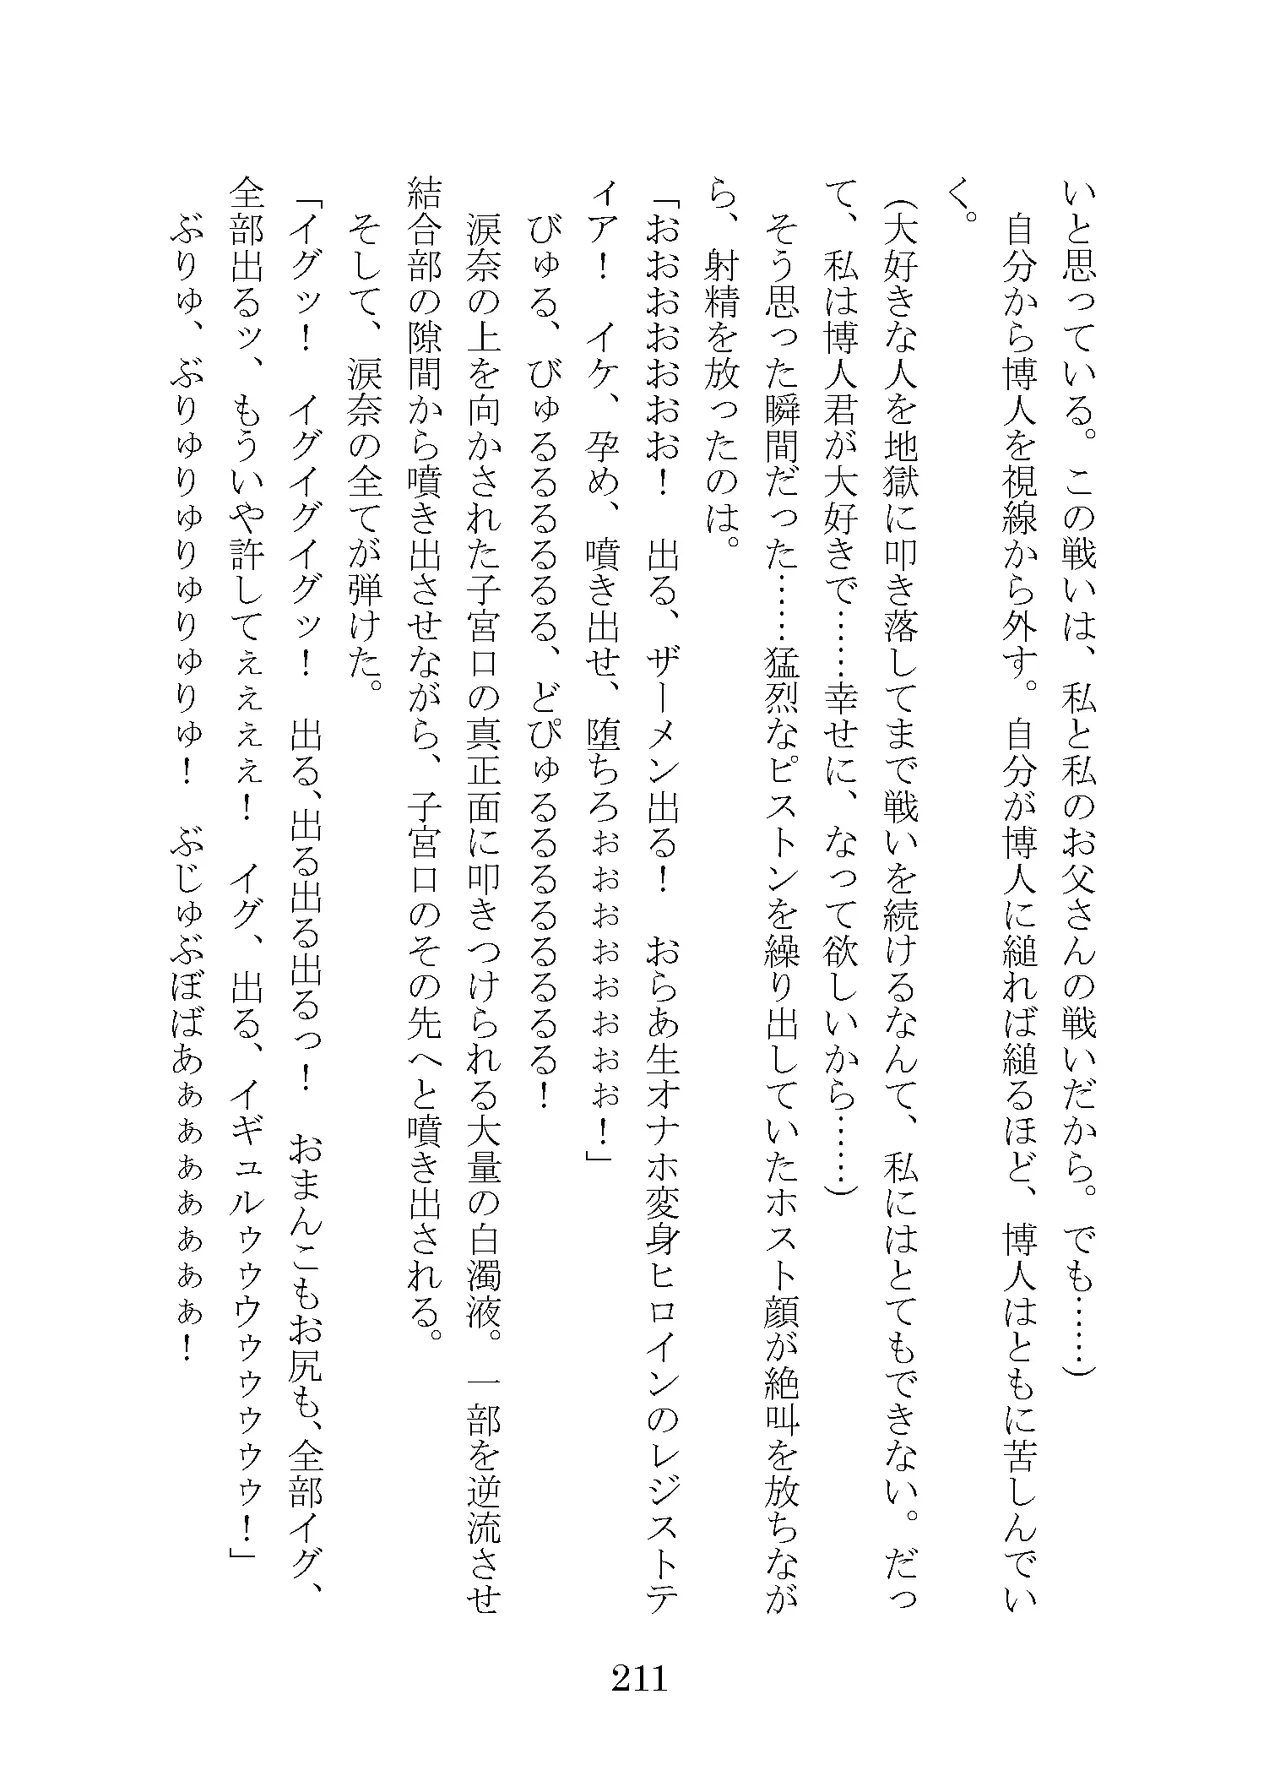 いと思っている。この戦いは、私と私のお父さんの戦いだから。でも……）
自分から博人を視線から外す。自分が博人に縋れば縋るほど、博人はともに苦しんでい
く。
（大好きな人を地獄に叩き落してまで戦いを続けるなんて、私にはとてもできない。だっ
て、私は博人君が大好きで……幸せに、なって欲しいから……）
そう思った瞬間だった……猛烈なピストンを繰り出していたホスト顔が絶叫を放ちなが
ら、射精を放ったのは。
「おおおおおおお！　出る、ザーメン出る！　おらあ生オナホ変身ヒロインのレジステ
ィア！　イケ、孕め、噴き出せ、堕ちろぉぉぉぉぉぉぉぉ！」
びゅる、びゅるるるるるる、どぴゅるるるるるるるる！
涙奈の上を向かされた子宮口の真正面に叩きつけられる大量の白濁液。一部を逆流させ
結合部の隙間から噴き出させながら、子宮口のその先へと噴き出される。
そして、涙奈の全てが弾けた。
「イグッ！　イグイグイグッ！　出る、出る出る出るっ！　おまんこもお尻も、全部イグ、
全部出るッ、もういや許してぇぇぇぇ！　イグ、出る、イギュルゥゥウゥゥゥゥゥ！」
ぶりゅ、ぶりゅりゅりゅりゅりゅ！　ぶじゅぶぼばあぁぁぁぁぁぁぁ！
211